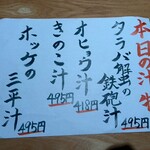 本日の汁 牛
タラバ蟹の
鉄砲汁
495円
オヒョウ汁
418円
きのこ汁
495円
ホッケの
三平汁
495円